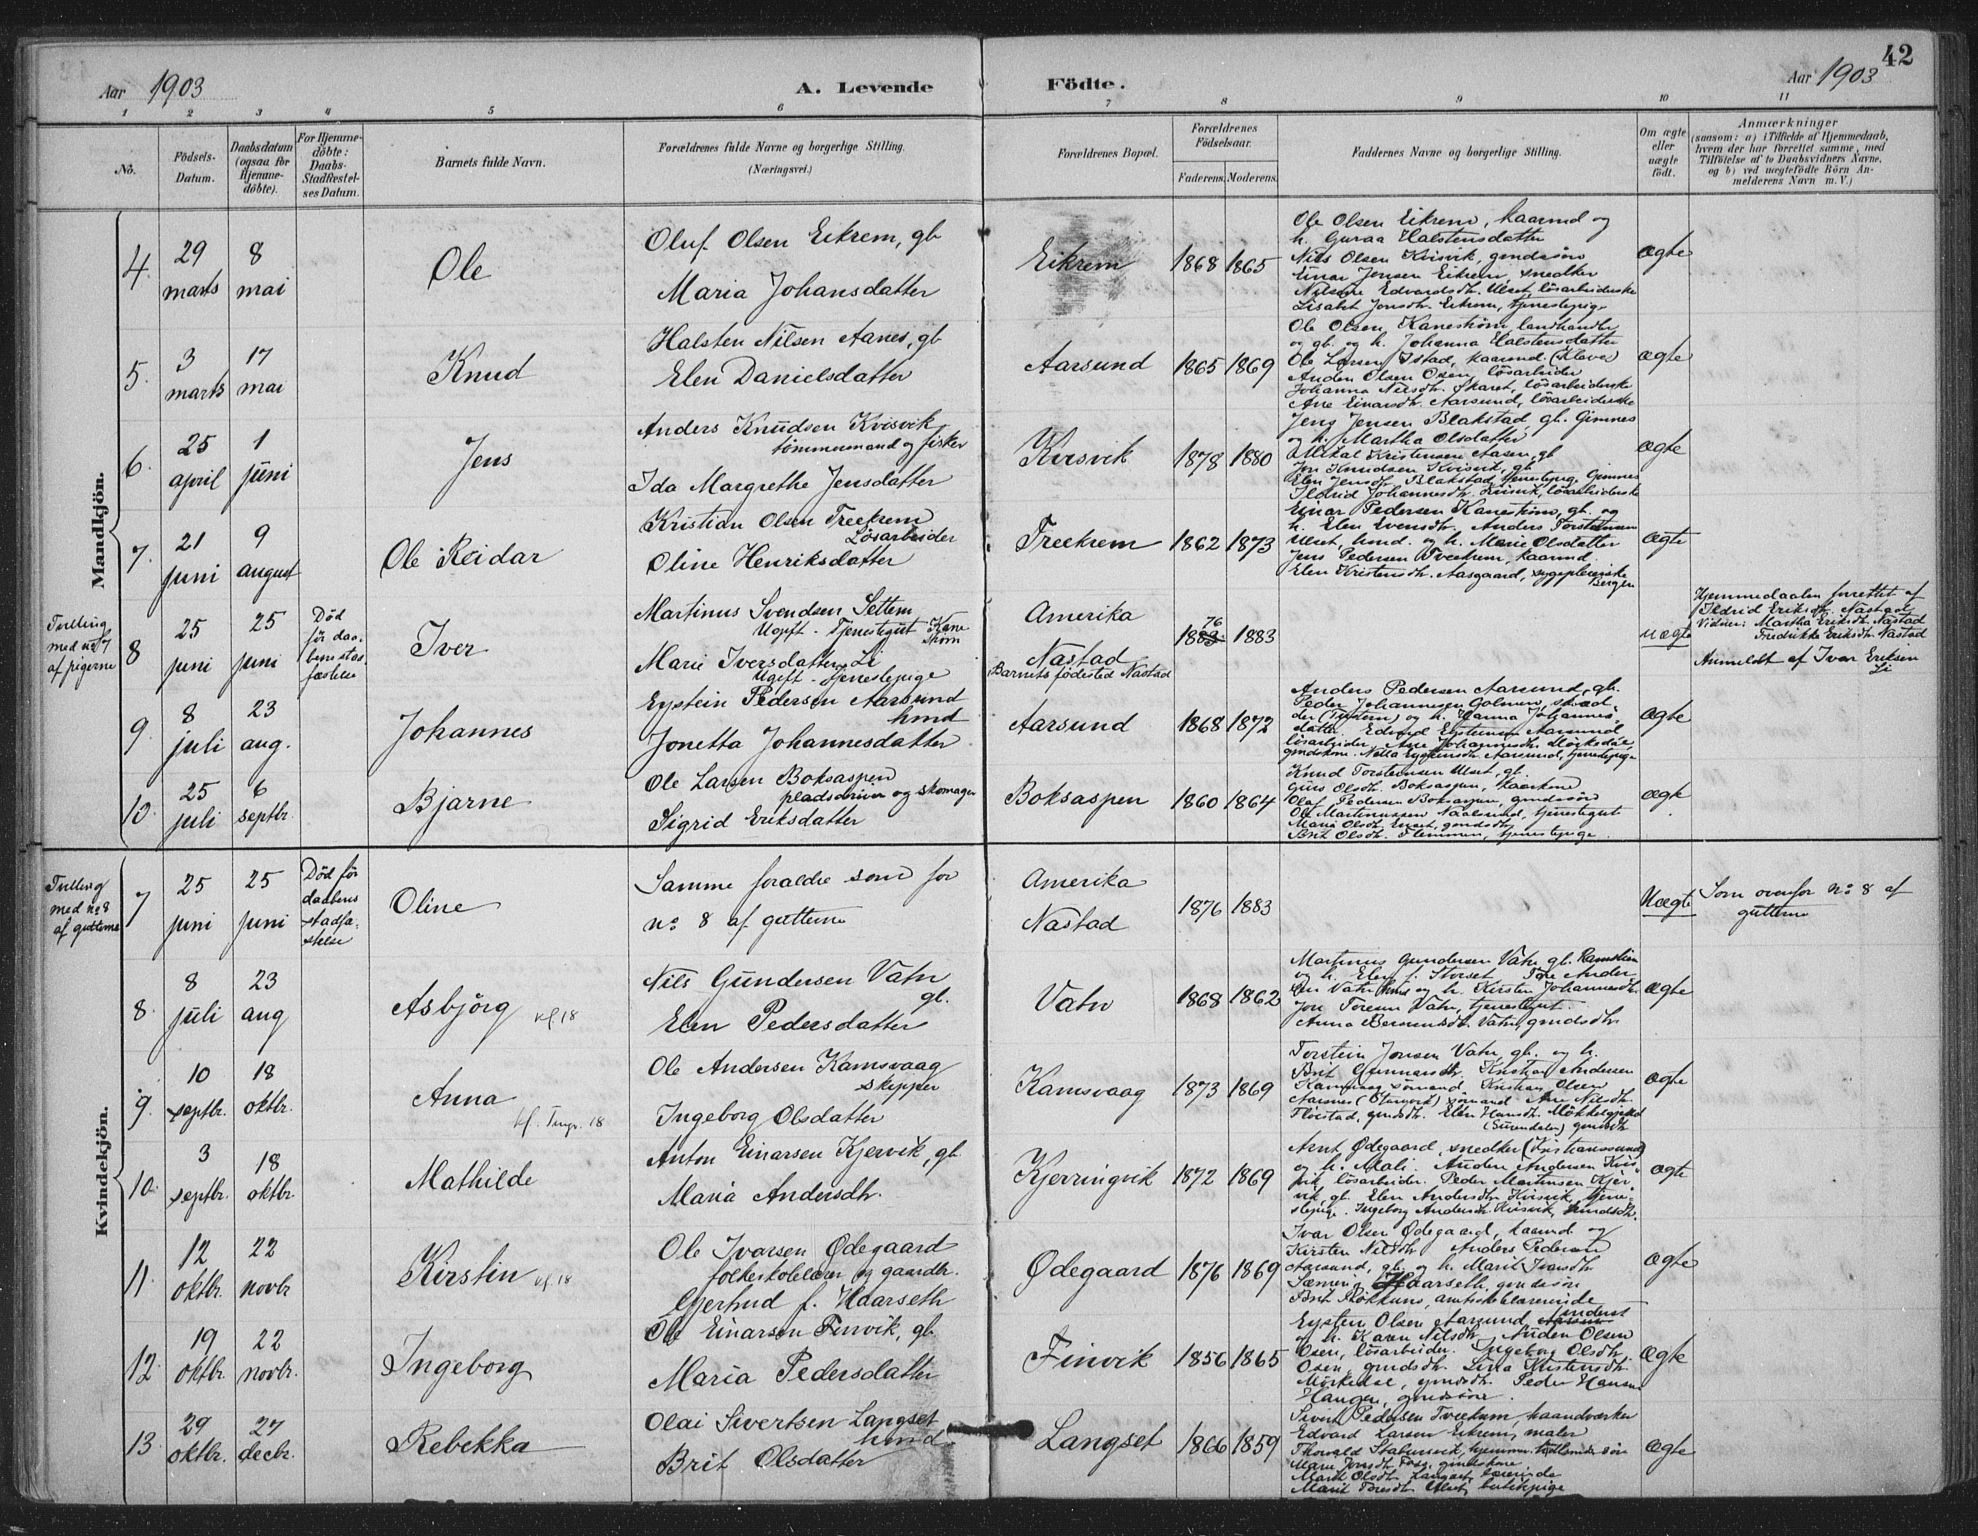 42
Aar 1903
A. Levende Födte.
Aar 1903
1 2 3 4 5 6 7 8 9 10 11
No.
Födsels-
Datum.
Daabsdatum
(ogsaa for
Hjemme-
döbte).
For Hjemme-
döbte:
Daabs-
Stadfæstel-
ses Datum.
Barnets fulde Navn.
Forældrenes fulde Navne og borgerlige Stilling.
(Næringsvei.)
Forældrenes Bopæl.
Forældrenes
Födselsaar.
Faderens. Moderens.
Faddernes Navne og borgerlige Stilling.
Om ægte
eller
uægte
födt.
Anmærkninger
(saasom: a) i Tilfælde af Hjemmedaab,
hvem der har forrettet samme, med
Tilföielse af to Daabsvidners Navne,
og b) ved uægtefödte Börn An-
melderens Navn m. V.)
Mandkjön.
4.
29
marts
8
mai
Ole
Oluf Olsen Eikrem, gb
Maria Johansdatter
Eikrem
1868 1865
Ole Olsen Eikrem, kaarmd og
h. Guraa Halstensdatter
Nils Olsen Kvisvik, gmdssön
Einar Jensen Eikrem, snedker
Edvardsdtr. Ulset, lösarbeiderske
Lisabet Jonsdtr. Eikrem, tjenestepige
Ægte
5.
3
marts
17
mai
Knud
Halsten Nilsen Aanes, gb
Elen Danielsdatter
Aarsund
1865 1869
Ole Olsen Kaneström, landhandler
og gb. og h. Johanna Halstensdatter
Ole Larsen Istad, kaarmd.
Anden Olsen Osen, lösarbeider
Johanna Nilsdtr. Skaret, lösarbeiderske
Ane Einarsdtr. Aarsund, lösarbeiderske
Ægte
6.
25
april
1
juni
Jens
Anders Knudsen Kvisvik,
tömmermand og fisker
Ida Margrethe Jensdatter
Kvisvik
1878 1880
Jens Jensen Blakstad, gb. Gimnes
og h. Martha Olsdatter
Mikal Kristensen Aasen, gb
Jon Knudsen Kvisvik, gb
Elen Jensdtr. Blakstad, tjenestepige Gimnes
Ildrid Johannesdtr. Kvisvik, lösarbeiderske
Ægte
7.
21
juni
9
august
Ole Reidar
Kristian Olsen Treekrem
Lösarbeider
Oline Henriksdatter
Treekrem
1862 1873
Einar Pedersen Kaneström, gb. og
h. Elen Evensdtr. Anders Torstensen
Ulset, hmd. og h. Marie Olsdatter
Jens Pedersen Treekrem, kaarmd
Elen Kristensdtr. Aasgaard, sygepleierske
Bergen
Ægte
Tvilling
med no 7
af pigerne
8
25
juni
25
juni
Död
för daa-
bens stad-
fæstelse
Iver
Martinus Svendsen Settem
Ugift - Tjenestegut Kane-
ström
Marie Iversdatter Li
Ugift - tjenestepige
Amerika
Nastad
Barnets födested Nastad
1883 76 1883
uægte
Hjemmedaaben forrettet af
Ildrid Eriksdtr. Nastad
Vidner: Martha Eriksdtr. Nastad
Fredrikke Eriksdtr. Nastad
Anmeldt af Ivar Eriksen
Li
9.
8
juli
23
aug.
Johannes
Eystein Pedersen Aarsund
hmd
Jonetta Johannesdatter
Aarsund
1868 1872
Anders Pedersen Aarsund, gb.
Peder Johannesen Golmen, skræd-
der og h. Hanna Johannes-
datter. Edvard Eysteinsen Aarsund
lösarbeider, Ane Johannesdtr.
Eysteinsdtr. Aarsund, tjenestepige
Ægte
10.
25
juli
6
septbr.
Bjarne
Ole Larsen Boksaspen
pladsdriver og skomager
Sigrid Eriksdatter
Boksaspen
1860 1864
Knud Torstensen Ulset, gb.
Guro Olsdtr. Boksaspen, kaarkone
Olaf Pedersen Boksaspen, gmdssön
Ole Martinussen Naalsund, tjenestegut
Marie Olsdtr. gmdsdtr.
Brit Olsdtr. Flemmen, tjenestepige
Ægte
Kvindekjön.
Tvilling
med no 8
af gutterne
7
25
juni
25
juni
Död för
daabens
stadfæ-
stelse
Oline
Samme foraldre som for
no 8 af gutterne
Amerika
Nastad
1876 1883
Uægte
Som ovenfor no 8 af
gutterne
8.
8
juli
23
aug
Asbjörg
Nils Gundersen Vatn
gb.
Elen Pedersdatter
Vatn
1868 1862
Martinus Gundersen Vatn gb.
og h. Elen f. Storset
Vatn og h. Kirsten Johannesdtr.
Jon Toresen Vatn, tjenestegut.
Anna Vatn, gmdsdtr.
Ægte
9.
10
septbr.
18
oktbr.
Anna
Ole Andersen Kamsvaag
skipper
Ingeborg Olsdatter
Kamsvaag
1873 1869
Torstein Jonsen Vatn, gb. og h.
Brit Gunnarsdtr. Kristian Andersen
Kamsvaag sömand Kristian Olsen
Aarsnes sömand Ane Nilsdtr.
gmdsdtr. Elen Hansdtr.
(Surendalen) gmdsdtr
Ægte
10.
3
septbr.
18
oktbr.
Mathilde
Anton Einarsen Kjervik, gb.
Maria Andersdtr.
Kjerringvik
1872 1869
Arnt Ødegaard, snedker (Kristianssund)
og h. Anders Andersen Kvis-
vik, lösarbeider. Peder Martinsen Kjer-
vik, gb. Elen Andersdtr. Kvisvik, tjene-
stepige. Ingeborg Andersdtr. Kvisvik, gmdsdtr.
Ægte
11.
12
oktbr.
22
novbr
Kirstin
Ole Ivarsen Ødegaard
folkeskolelærer og gaardbr.
Gjertrud f. Haarseth
Ødegaard
1876 1869
Ivar Olsen Ødegaard, kaarmd og
Kirsten Nilsdtr Anders Pedersen
Aarsund, gb. og h. Marit Ivarsdtr
Haarseth, gmdssön
Brit Rökkum, amtsskolelærerinde
Ægte
12.
19
oktbr.
22
novbr.
Ingeborg
Ole Einarsen Finvik, gb.
Maria Pedersdatter
Finvik
1856 1865
Eysten Olsen Aarsund,
og h. Karen Nilsdtr. Anden Olsen
Osen, lösarbeider. Ingeborg Olsdtr.
Osen, gmdsdtr. Lina Kristensdtr.
gmdsdtr. Peder Hansen
Hauger, gmdssön.
Ægte
13.
29
oktbr.
27
decbr.
Rebekka
Olai Sivertsen Langset
hmd
Brit Olsdatter
Langset
1866 1859
Sivert Pedersen Treekrem, haandværker
Edvard Larsen Eikrem, maler
Thorvald
Marie Jonsdtr. gmdskone
Marit Olsdtr. Langset, lærerinde
Marit Toresdtr. Ulset, butikpige
Ægte